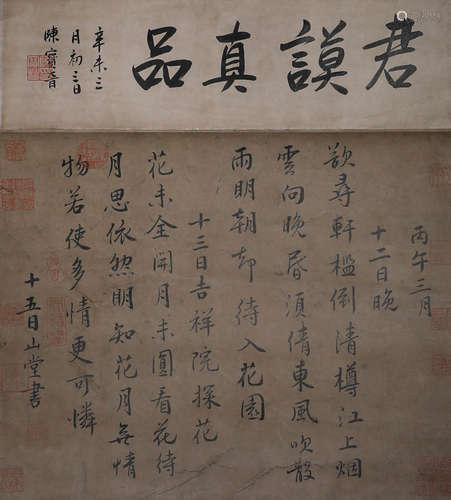 君謨真品
辛未三
月初三日
陳寶音
丙午三月
十二日晚
欲尋軒檻倒清樽江上烟
雲向晚昏須倩東風吹散
雨明朝却待入花園
十三日吉祥院探花
花未全開月未圓看花待
月思依然明知花月無情
物若使多情更可憐
十五日山堂書